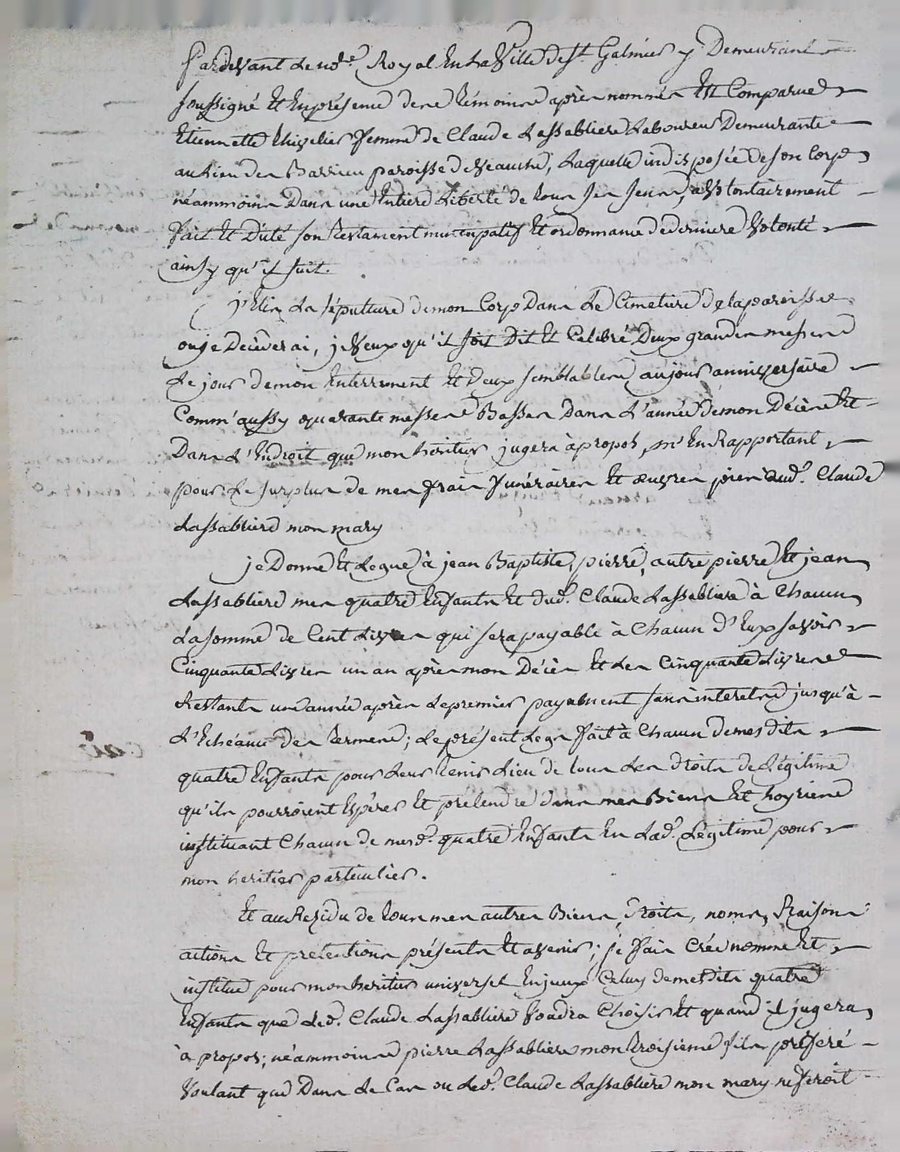 Pardevant Le no.re Royal En La Ville de St. Galmier y Demeurant
soussigné Et En présence des témoins après nommés Est Comparue
Etiennette femme de Claude Lassabliere Laboureur Demeurante
au Lieu des Barrieu paroisse de Veauche, Laquelle indisposée de son Corps
néammoins Dans une Entiere Liberté de tous ses sens, a Volontairement
fait Et Dicté son testament nuncupatif Et ordonnance de derniere Volonté
ainsy qu'il suit.
j'Elis La sépulture de mon Corps Dans Le Cimetiere de La paroisse
ou je Décèderai, je Veux qu'il soit Dit Et Celébré Deux grandes messes
Le jour de mon Enterrement Et deux semblables au jour anniversaire
Comm'aussy quarante messes Basses Dans L'année de mon Décès Et
Dans L'Endroit que mon héritier jugera à propos, m'En Rapportant
pour Le surplus de mes frais funéraires Et œuvres pies aud. Claude
Lassabliere mon mary
je Donne Et Legue à jean Baptiste, pierre, autre pierre Et jean
Lassabliere mes quatre Enfants Et dud. Claude Lassabliere à Chacun
La somme de Cent Livres qui sera payable à Chacun d'Eux savoir
Cinquante Livres un an après mon Décès Et Les Cinquante Livres
Restants une année après Le premier payement sans interets jusqu'à
L'Echéance des termes; Le présent Legs fait à Chacun de mes dits
quatre Enfants pour Leur tenir Lieu de tous Les droits de Légitime
qu'ils pourroient Espèrer Et prétendre dans mes Biens Et hoyries
instituant Chacun de mesd. quatre Enfants En Lad. Légitime pour
mon heritier particulier.
Et au Residu de tous mes autres Biens, Droits, noms, Raisons
actions Et prétentions présents Et avenir; je fais Crée nomme Et
institue pour mon héritier universel Celuy de mes dits quatre
Enfants que Led. Claude Lassabliere Voudra Choisir Et quand il jugera
à propos; néammoins pierre Lassabliere mon troisieme fils préféré
Voulant que Dans Le Cas ou Led. Claude Lassabliere mon mary ne feroit